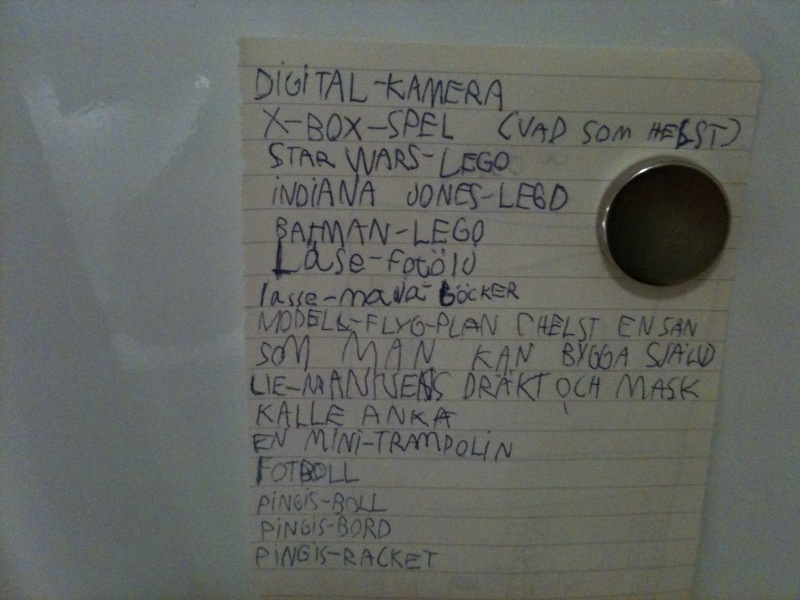 DIGITAL-KAMERA
X-BOX-SPEL (VAD SOM HELST)
STAR WARS-LEGO
INDIANA JONES-LEGO
BATMAN-LEGO
Låse-fotöld
lasse-maja-BÖCKER
MODELL-FLYG-PLAN (HELST EN SÅN
SOM MAN KAN BYGGA SJÄLV)
LIE-MANNENS DRÄKT OCH MASK
KALLE ANKA
EN MINI-TRAMPOLIN
FOTBOLL
PINGIS-BOLL
PINGIS-BORD
PINGIS-RACKET